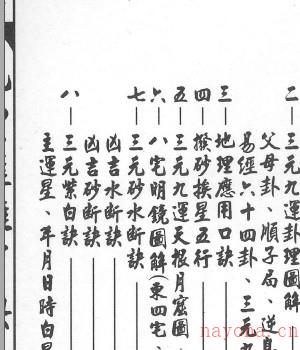 二—三元九運卦理圖解
父母卦、順子局、逆息
易經六十四卦、三元九
三—地理應用口訣
四—撥砂挨星五行
五—三元九運天根月窟圖
六—八宅明鏡圖解(東四宅、
七—三元水斷訣
凶吉水斷訣
凶吉砂斷訣
八—三元紫白訣
主運星、年月日時白星
nayona.cn